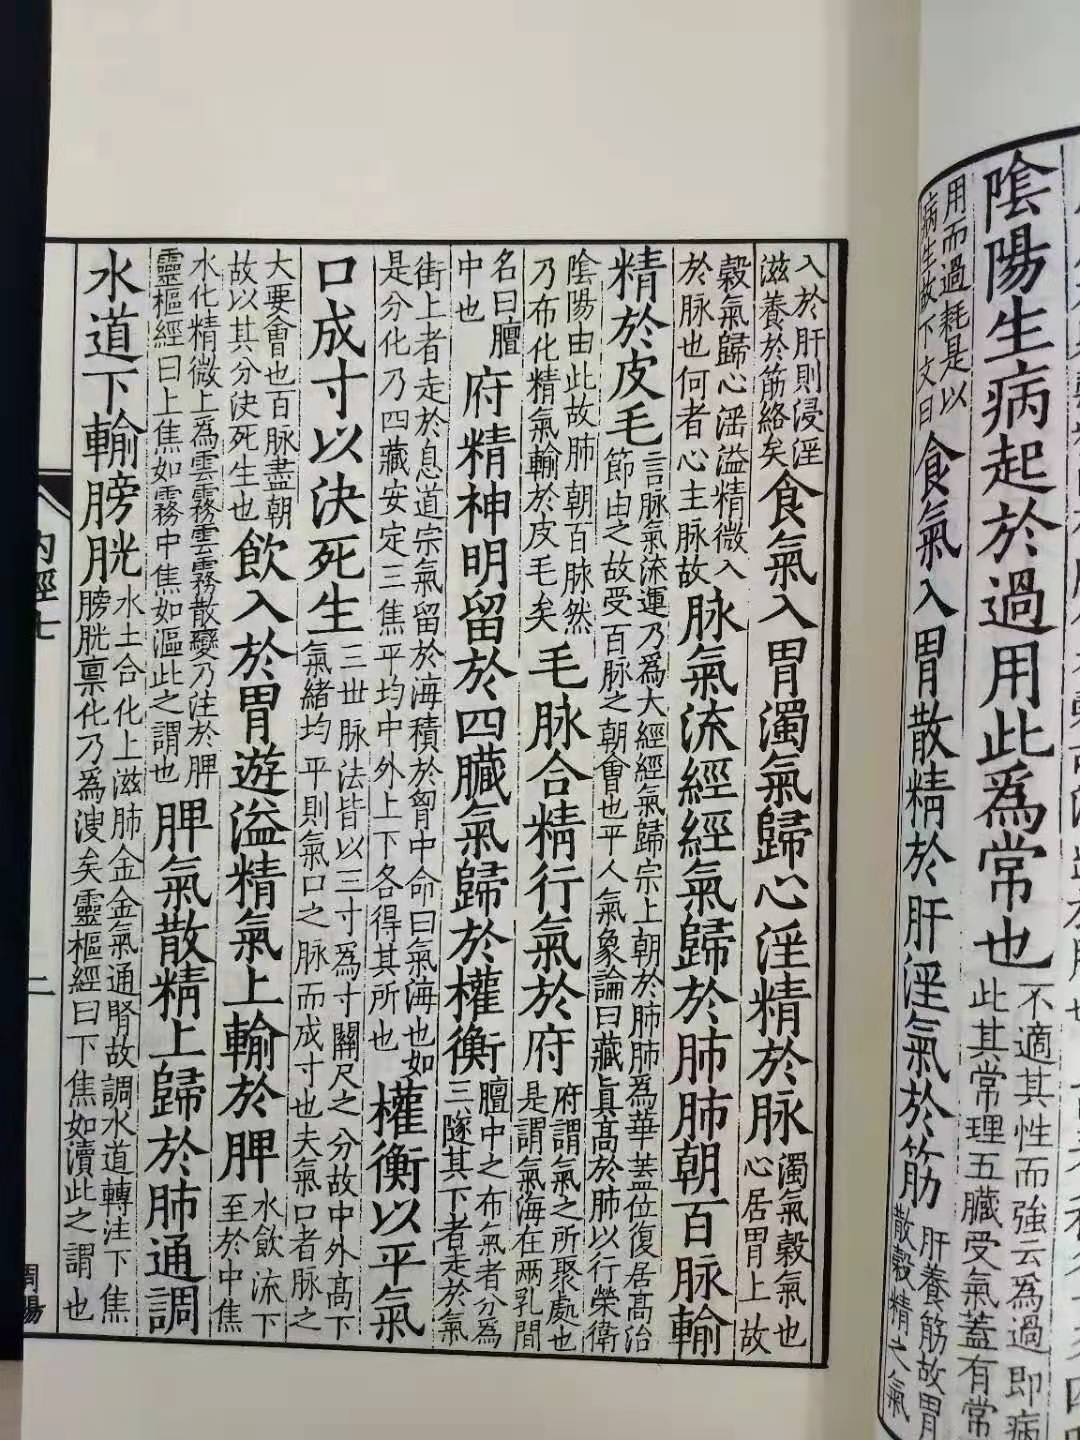 陰陽生病起於過用此爲常也
不適其性而強云爲過即病
此其常理五臟受氣蓋有常
用而過耗是以
病生故下文曰
食氣入胃散精於肝淫氣於筋
肝養筋故胃
散穀精之氣
入於肝則浸淫
滋養於筋絡矣
食氣入胃濁氣歸心淫精於脉
濁氣穀氣也
心居胃上故
穀氣歸心淫溢精微入
於脉也何者心主脉故
脉氣流經經氣歸於肺肺朝百脉輸
精於皮毛
言脉氣流運乃爲大經經氣歸宗上朝於肺肺爲華蓋位復居高治
節由之故受百脉之朝會也平人氣象論曰藏眞高於肺以行榮衛
陰陽由此故肺朝百脉然
乃布化精氣輸於皮毛矣
毛脉合精行氣於府
府謂氣之所聚處也
是謂氣海在兩乳間
名曰膻
中也
府精神明留於四臓氣歸於權衡
膻中之布氣者分爲
三隧其下者走於氣
街上者走於息道宗氣留於海積於胷中命曰氣海也如
是分化乃四藏安定三焦平均中外上下各得其所也
權衡以平氣
口成寸以決死生
三世脉法皆以三寸爲寸關尺之分故中外高下
氣緒均平則氣口之脉而成寸也夫氣口者脉之
大要會也百脉盡朝
故以其分決死生也
飲入於胃遊溢精氣上輸於脾
水飲流下
至於中焦
水化精微上爲雲霧雲霧散變乃注於脾
靈樞經曰上焦如霧中焦如漚此之謂也
脾氣散精上歸於肺通調
水道下輸膀胱
水土合化上滋肺金金氣通腎故調水道轉注下焦
膀胱禀化乃爲溲矣靈樞經曰下焦如瀆此之謂也
内經七
二